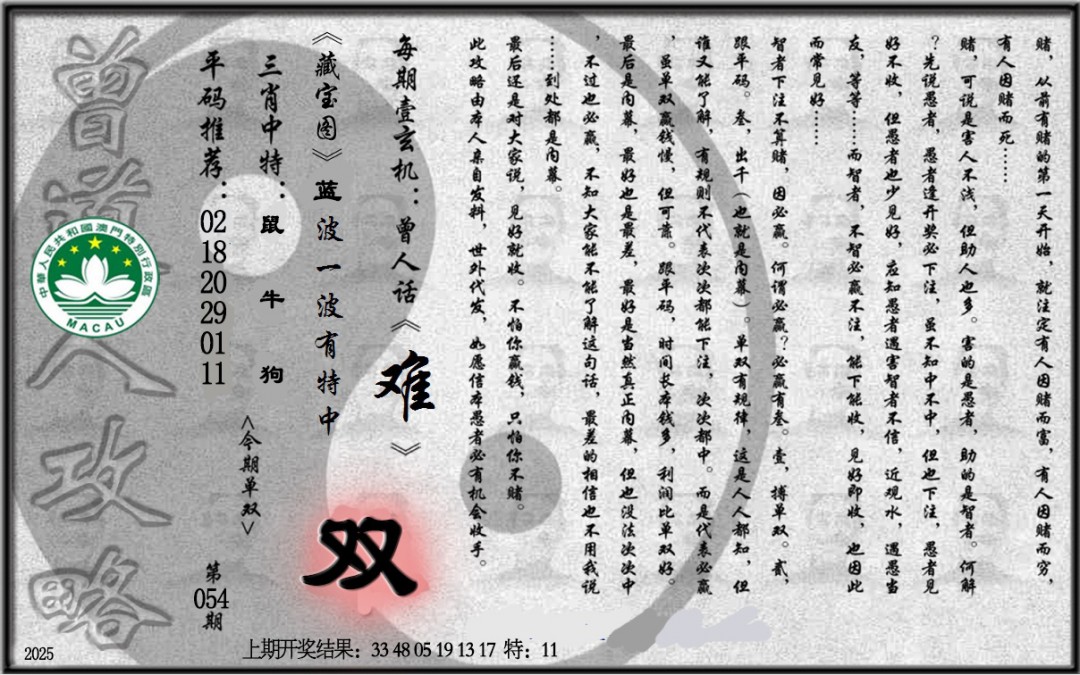 赌，从前有赌的第一天开始，就注定有人因赌而富，有人因赌而穷，
有人因赌而死……
赌，可说是害人不浅，但助人也多。害的是愚者，助的是智者。何解
？先说愚者，愚者逢开奖必下注，虽不知中不中，但也下注，愚者见
好不收，但愚者也少见好，应知愚者遇害智者不信，近观水，遇愚当
友，等等……而智者，不智必赢不注，能下能收，见好即收，也因此
而常见好……
智者下注不算赌，因必赢。何谓必赢？必赢有叁。壹，搏单双。贰，
跟平码。叁，出千（也就是内幕）。单双有规律，这是人人都知，但
谁又能了解，有规则不代表次次都能下注，次次都中。而是代表必赢
，虽单双赢钱慢，但可靠。跟平码，时间长本钱多，利润比单双好。
最后是内幕，最好也是最差，最好是当然真正内幕，但也没法次次中
，不过也必赢，不知大家能不能了解这句话，最差的相信也不用我说
……到处都是内幕。
最后还是对大家说，见好就收。不怕你赢钱，只怕你不赌。
此攻略由本人亲自发料，世外代发，如愿信本愚者必有机会收手。
每期壹玄机：曾人话《难》
《藏宝图》蓝波一波有特中
三肖中特：鼠 牛 狗
<今期单双>
双
平码推荐：02 18 20 29 01 11
第054期
曾道人攻略
中華人民共和國澳門特別行政區
MACAU
2025
上期开奖结果：33 48 05 19 13 17 特：11